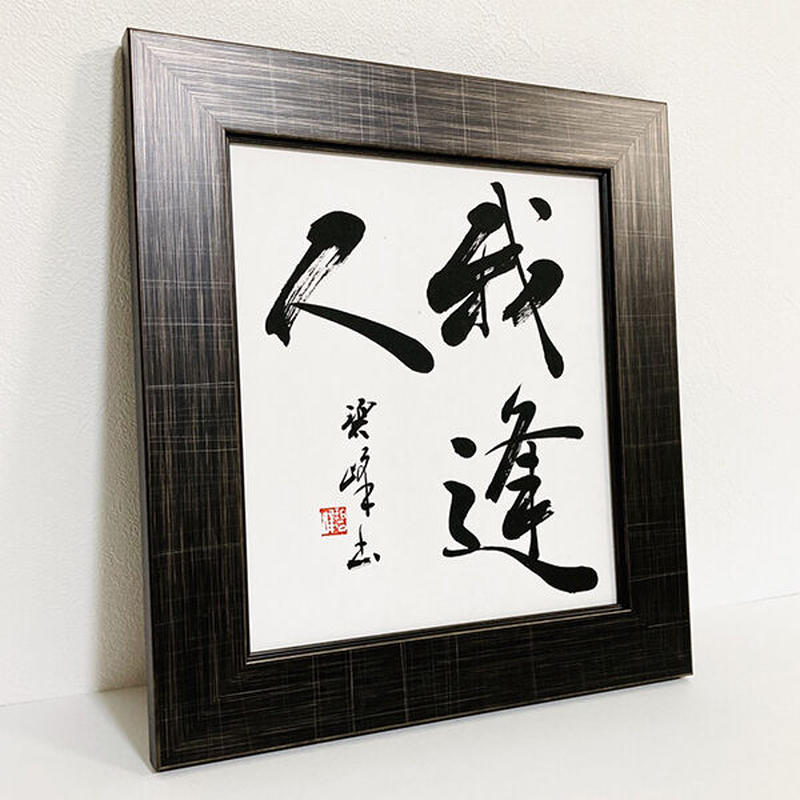 我逢
人
碧峰書